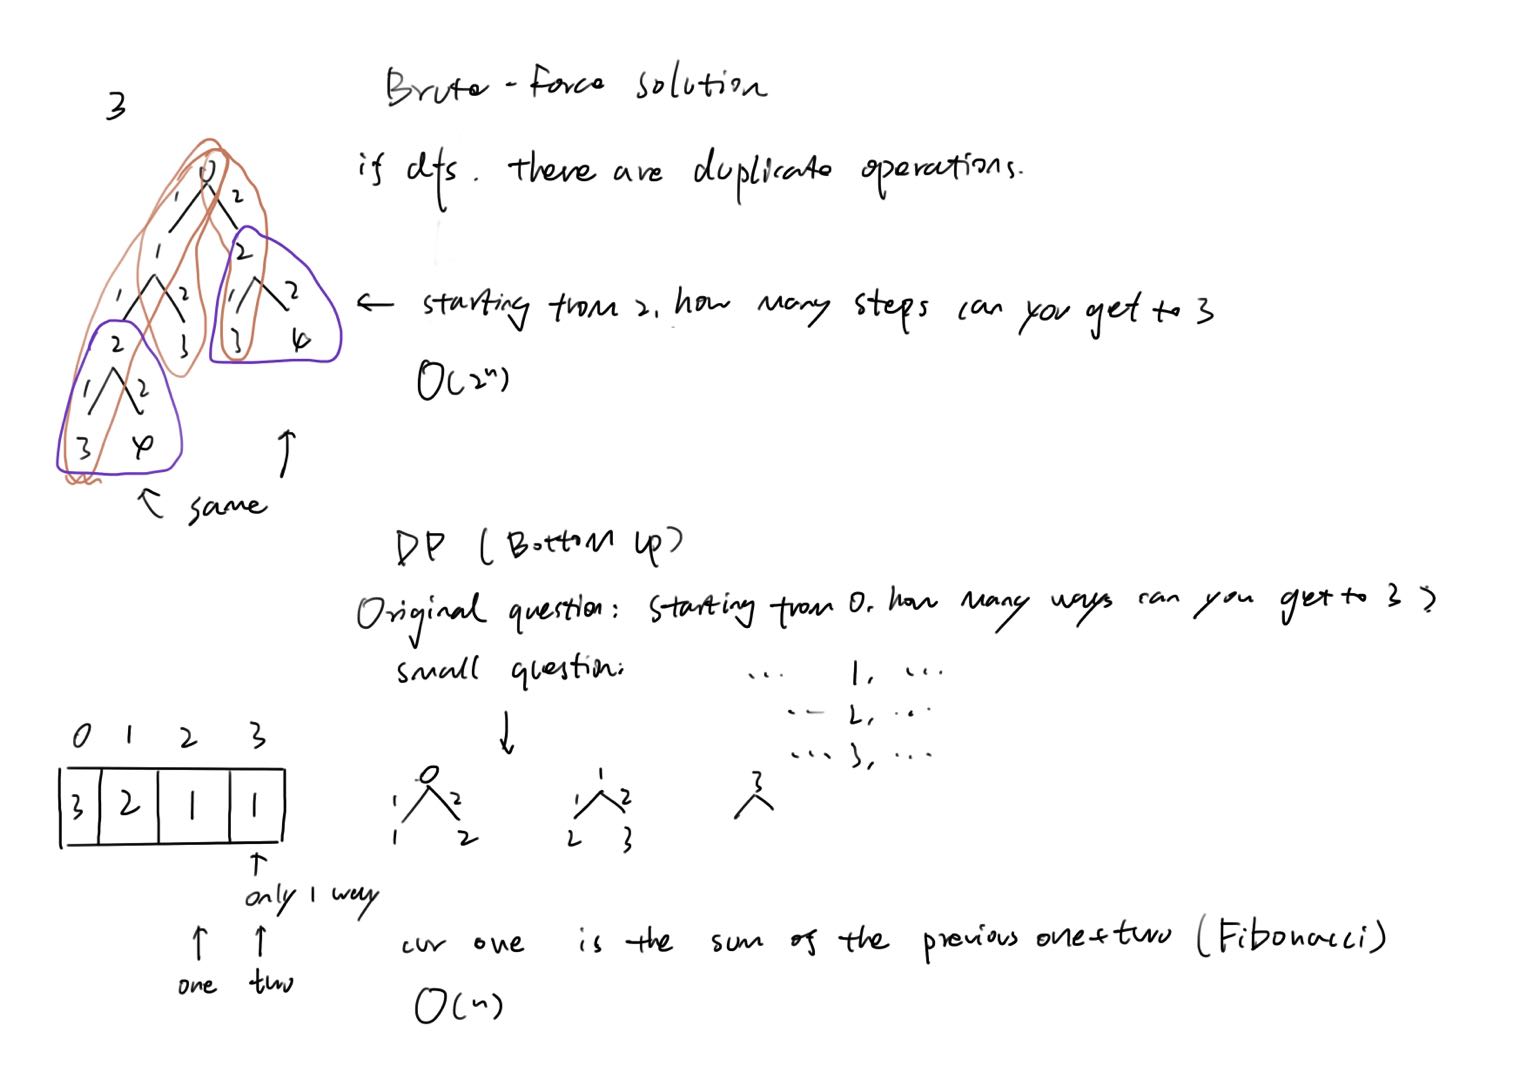 3
Brute-Force solution
if dfs. there are duplicate operations.
0
1 2
1 2
1 2 1 2
2 3 3 4
1 2
3 4
← starting from 2, how many steps can you get to 3
O(2ⁿ)
↑
↖ same
DP (Bottom up)
Original question: starting from 0, how many ways can you get to 3?
small question:
... 1, ...
... 2, ...
... 3, ...
↓
0 1 2 3
3 2 1 1
0 1 3
1 2 1 2
1 2 2 3
↑
only 1 way
↑ ↑
one two
cur one is the sum of the previous one+two (Fibonacci)
O(n)